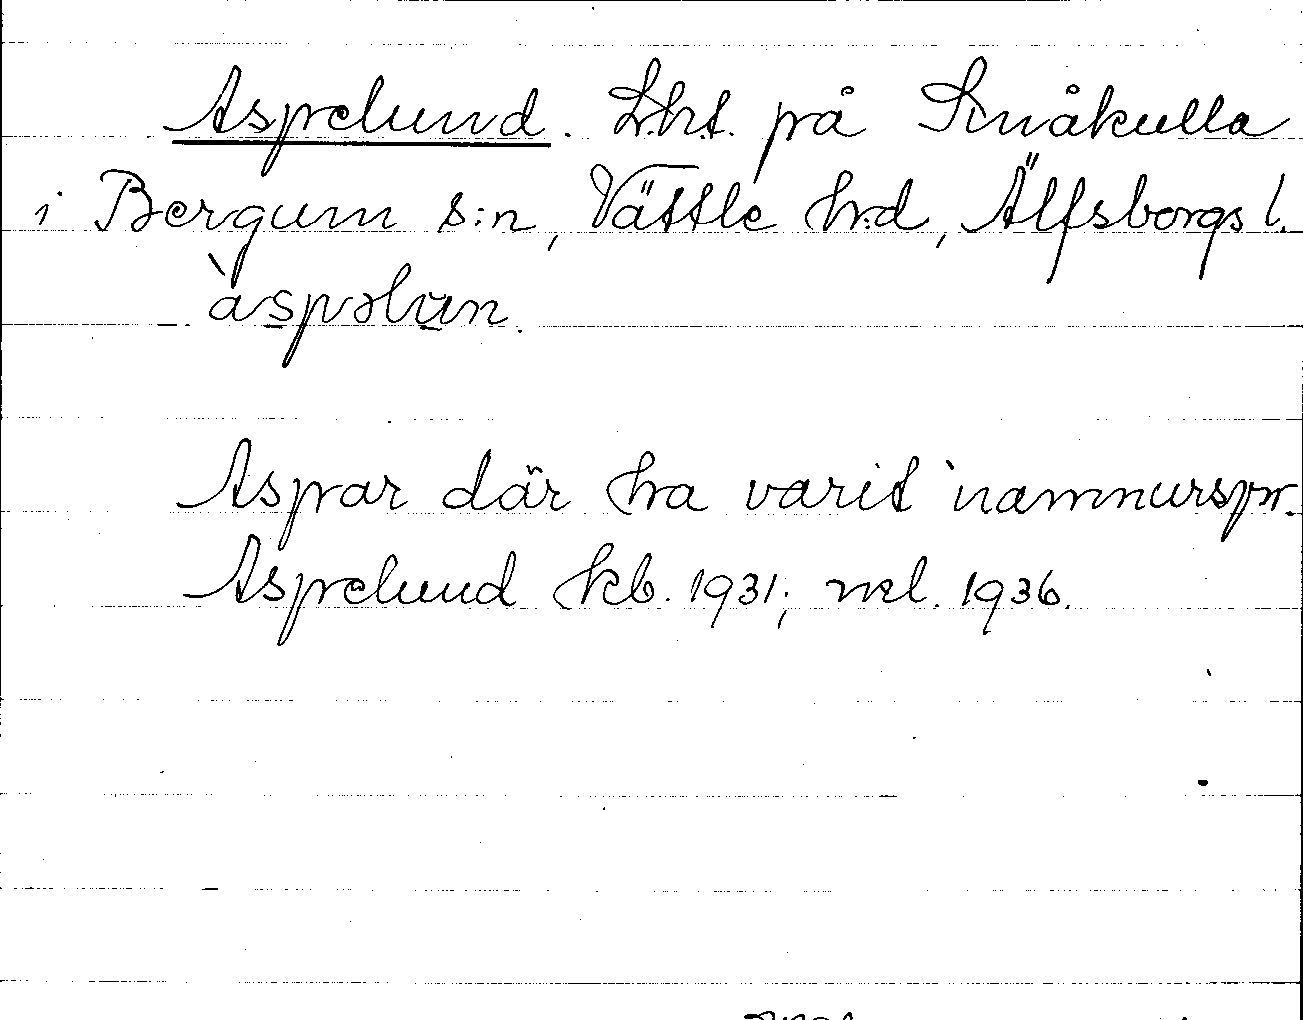 Aspelund. L:ht. på Småkulla
i Bergum s:n, Vättle h:d, Älfsborgs l.
àspəlun.
Aspar där ha varit namnurspr.
Aspelund kb. 1931; ml. 1936.